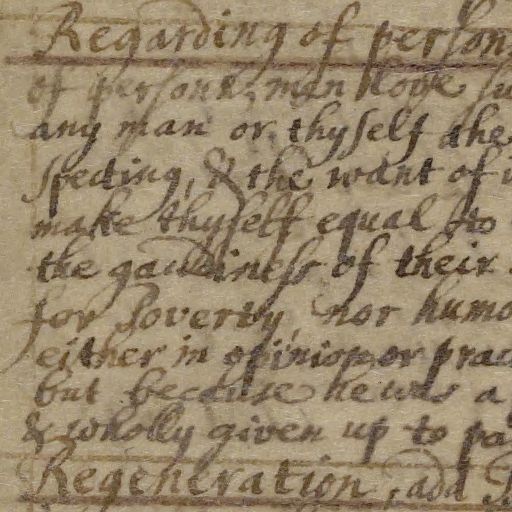 Regarding of person
of persons, man
any man or thyself
specting, & the want of
make thyself equal to
the gaudiness of their
for Poverty, nor humo
either in opinion or prac
but because he was a
& wholly given up to pa
Regeneration, add